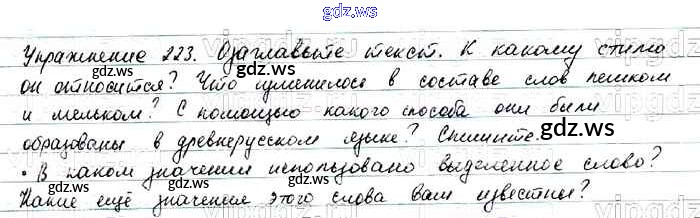 gdz.ws
Упражнение 223. Озаглавьте текст. К какому стилю
он относится? Что изменилось в составе слов пешком
и мельком? С помощью какого способа они были
образованы в древнерусском языке? Спишите.
• В каком значении использовано выделенное слово?
Какие ещё значение этого слова вам известны?